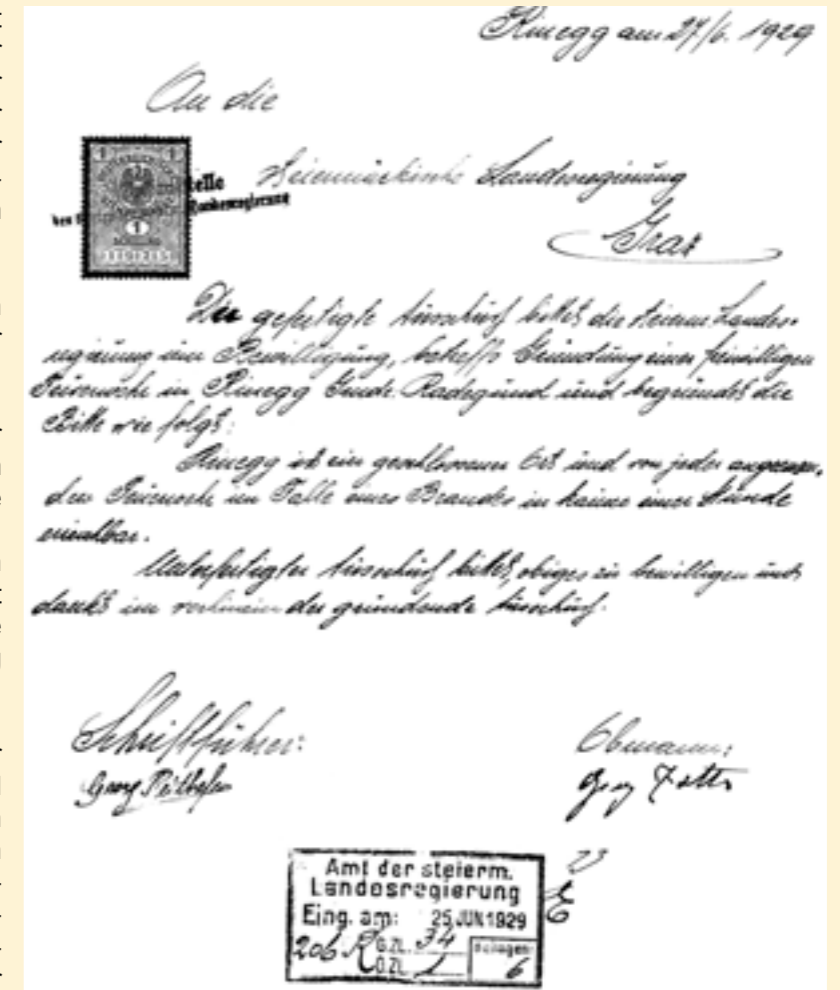 Rinegg am 27/6. 1929
An die
Steiermärkische Landesregierung
Graz
Der gefertigte Ausschuß bittet die steierm. Landes-
regierung um Bewilligung, betreffs Gründung einer freiwilligen
Feuerwehr in Rinegg Gmde. Radegund und begründet die
Bitte wie folgt:
Rinegg ist ein geschlossener Ort und von jeder angrenzen-
den Feuerwehr im Falle eines Brandes in kaum einer Stunde
erreichbar.
Unterfertigter Ausschuß bittet, obiges zu bewilligen und
dankt im vorhinein der gründende Ausschuß.
Schriftführer:
Georg
Obmann:
Amt der steierm.
Landesregierung
Eing. am: 25 JUN 1929
206 R G.ZL. 34
O.ZL. 1
Beilagen:
6